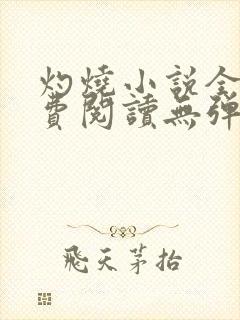 灼燒小說全
費閱讀無彈
飛天茅抬